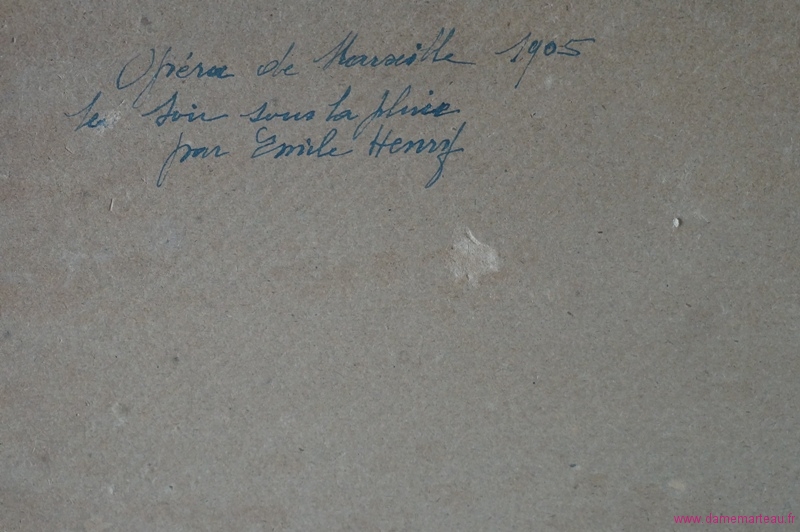 Opéra de Marseille 1905
le soir sous la pluie
par Emile Henry
www.damemarteau.fr